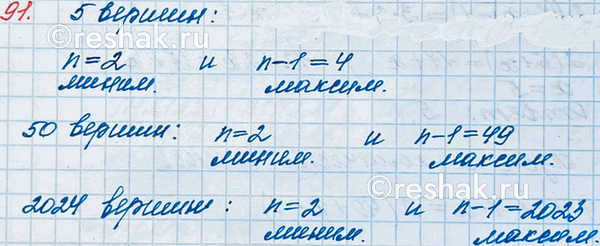 91. 5 вершин:
n=2 и n-1=4
миним. максим.
50 вершин: n=2 и n-1=49
миним. максим.
2024 вершин: n=2 и n-1=2023
миним. максим.
reshak.ru